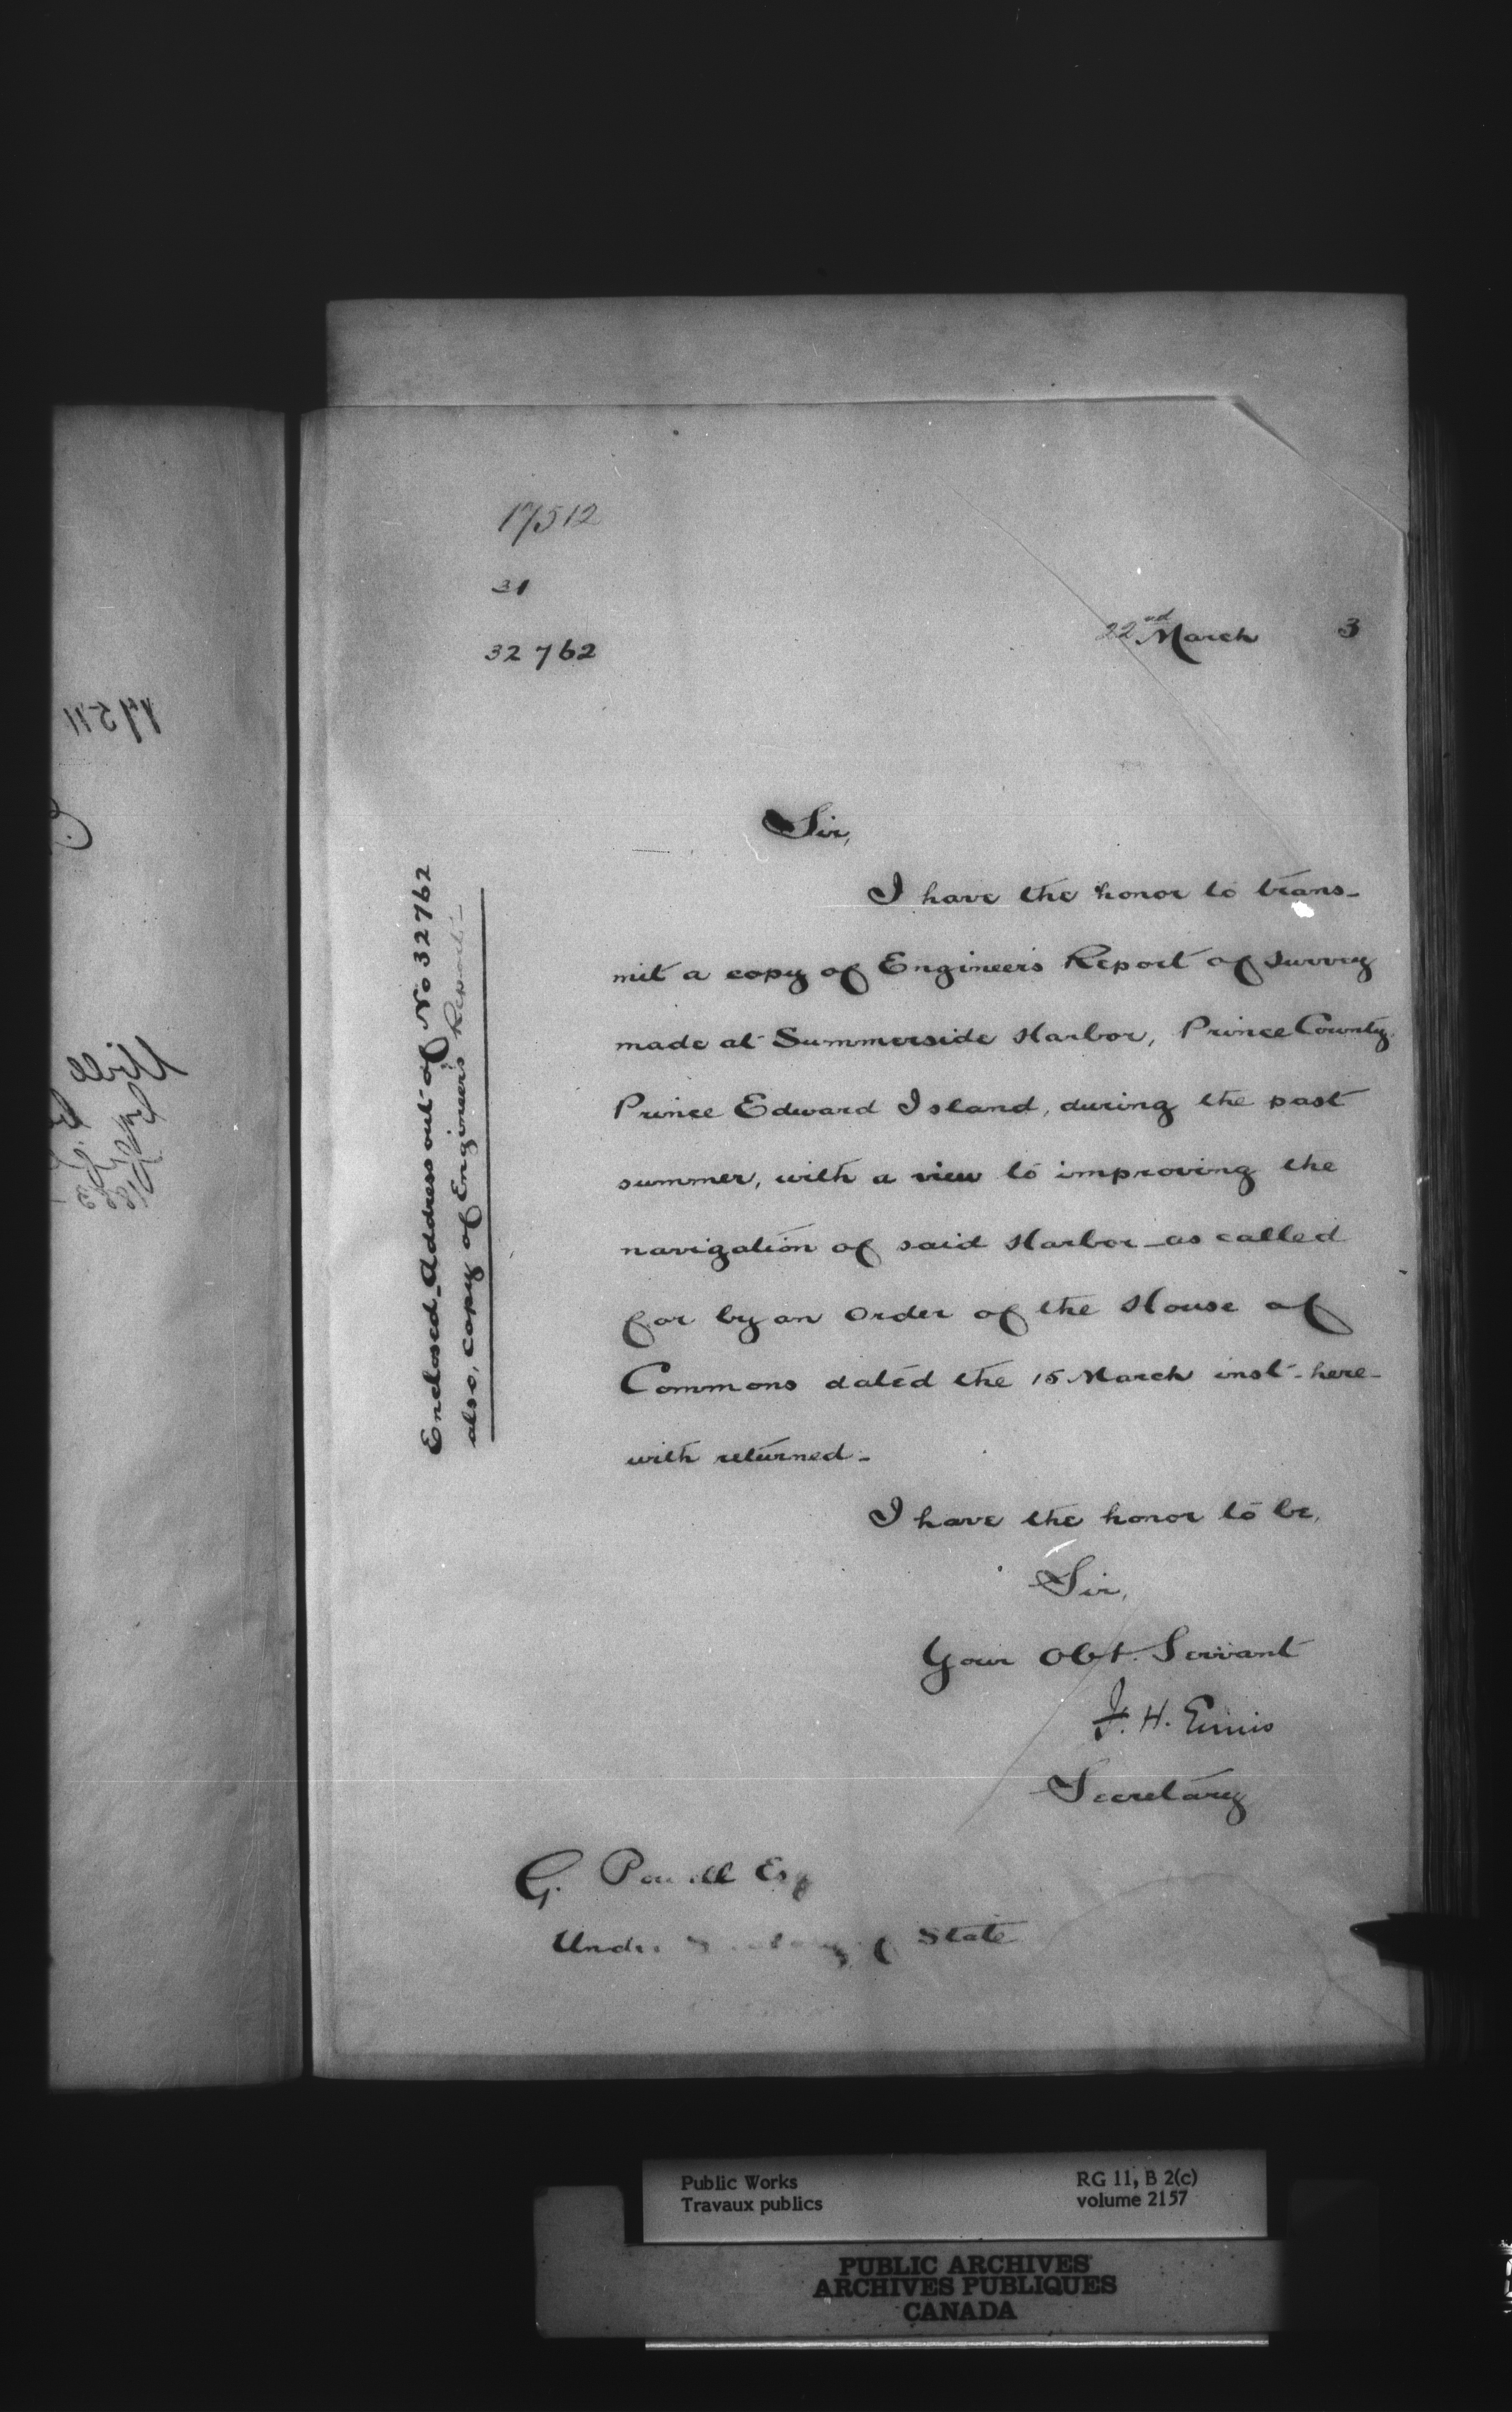 17512
31
32762
22nd March 3
Sir,
I have the honor to trans-
mit a copy of Engineers Report of survey
made at Summerside Harbor, Prince County,
Prince Edward Island, during the past
summer, with a view to improving the
navigation of said Harbor as called
for by an Order of the House of
Commons dated the 15 March inst. here-
with returned.
I have the honor to be,
Sir,
Your Obt. Servant
F. H. Ennis
Secretary
G. Powell Esq
Under Secretary of State
Enclosed Address out of No 32762
also, copy of Engineers Report.
17511
Public Works
Travaux publics
RG 11, B 2(c)
volume 2157
PUBLIC ARCHIVES
ARCHIVES PUBLIQUES
CANADA